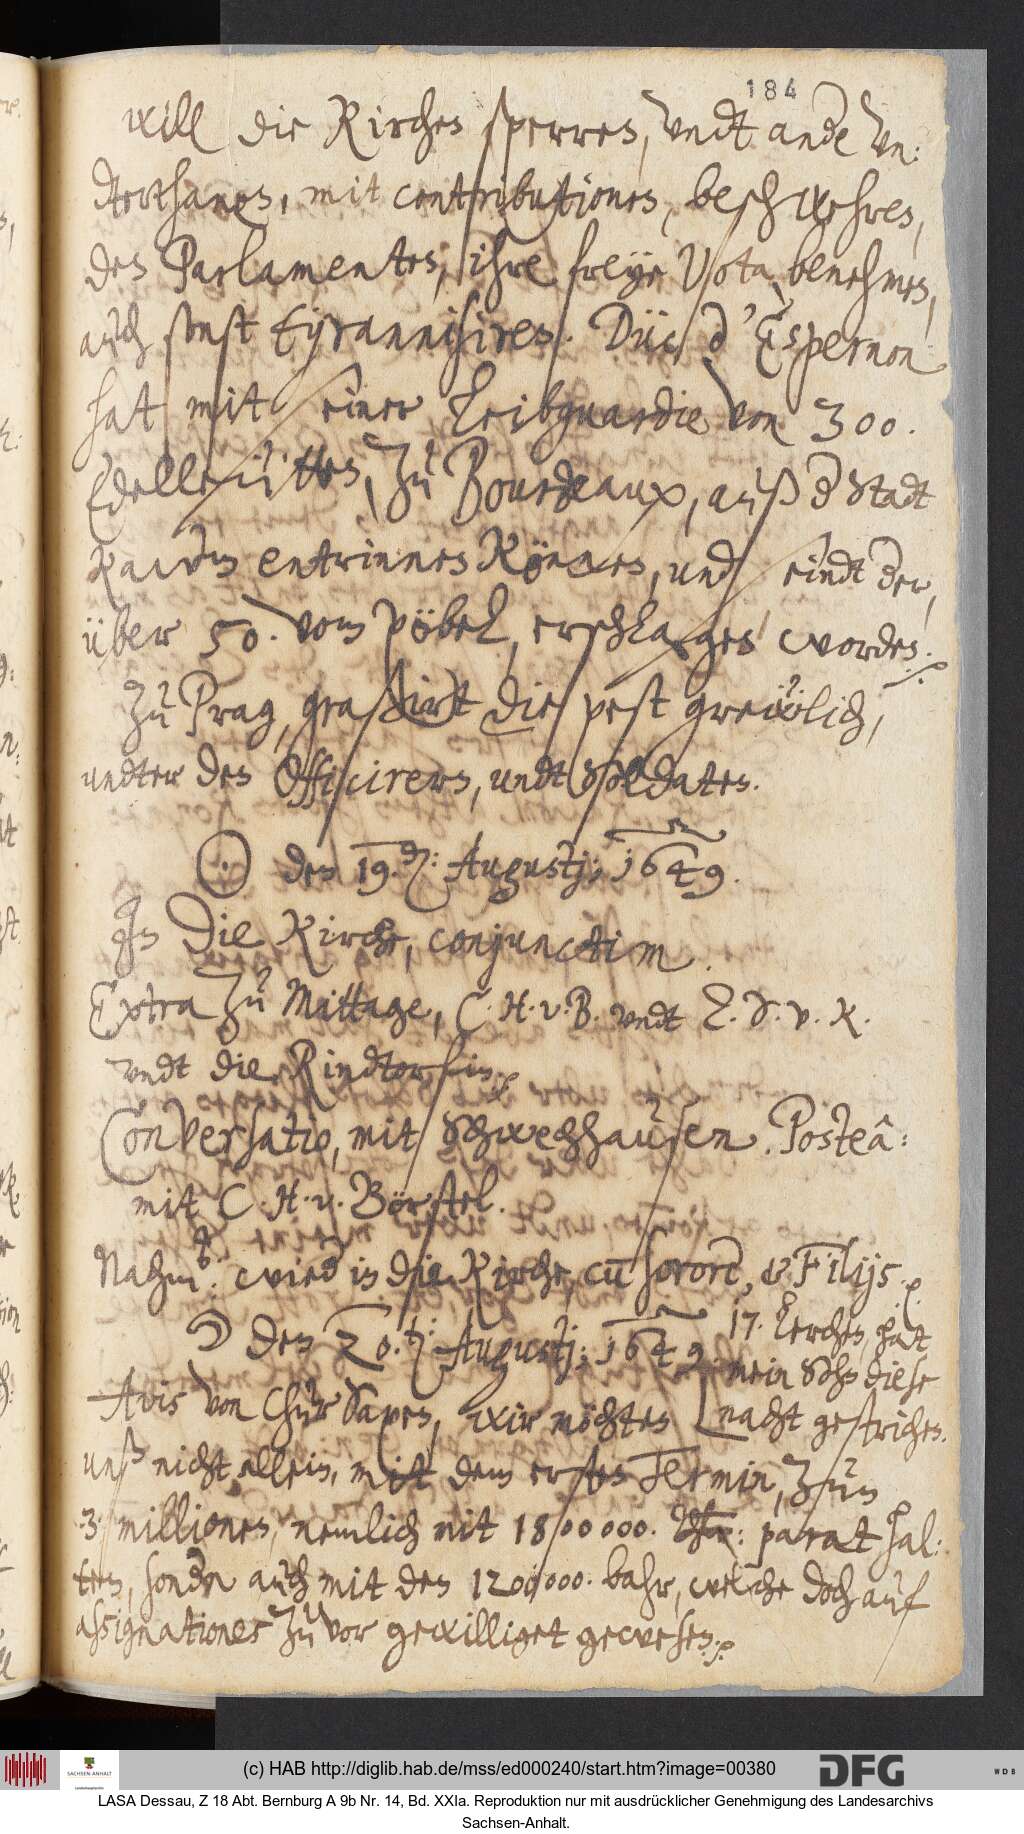 184
will die Kirchen sperren, vndt andre vn:
dterthanen, mit contributionen, beschwehren,
den Parlamenten, ihre freye Vota benehmen,
auch sonst tyrannisiren. Düc d'Espernon
hat mit seiner Leibguardie von 300.
Edelleütten, zu Bourdeaux, auß der Stadt
kaum entrinnen können, und seindt derer,
über 50. vom pöbel, erschlagen worden.
Zu Prag, grassirt die pest grewlich,
undter den Officirern, undt Soldaten.
☉ den 19. Augustj; 1649.
In die Kirche, conjunctim.
Extra zu Mittage, C. H. v. B. vndt L. S. v. K.
vndt die Rindtorfin.
Conversatio, mit Schwechhausen. Posteâ:
mit C. H. v. Börstel.
Nahm: wied in die Kirche, cum sorore, & Filijs.
☽ den 20. Augustj; 1649.
17. Lerchen, hat
mein Sohn diese
nacht gestrichen.
Avis von Chur Saxen, wir möchten
unß nicht allein, mit dem ersten Termin, zun
3 millionen, nemlich mit 1800000. Thlr: parat hal:
ten, sondern auch mit den 1200000. bahr, welche doch auf
assignationes zu vor gewilliget gewesen.
(c) HAB http://diglib.hab.de/mss/ed000240/start.htm?image=00380
SACHSEN-ANHALT
DFG
WDB
LASA Dessau, Z 18 Abt. Bernburg A 9b Nr. 14, Bd. XXIa. Reproduktion nur mit ausdrücklicher Genehmigung des Landesarchivs
Sachsen-Anhalt.